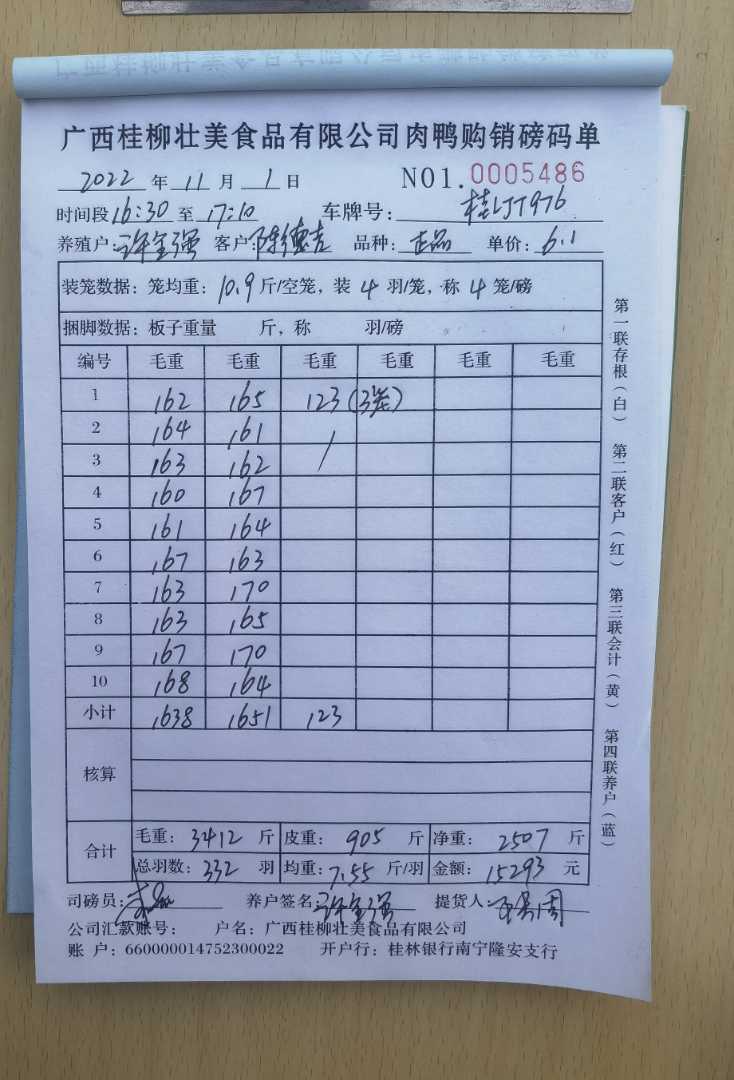 广西桂柳壮美食品有限公司肉鸭购销磅码单
2022 年 11 月 1 日 NO1.0005486
时间段 16:30 至 17:10 车牌号: 桂LJT976
养殖户: 许金强 客户: 陈德吉 品种: 正品 单价: 6.1
装笼数据: 笼均重: 10.9 斤/空笼, 装 4 羽/笼, 称 4 笼/磅
捆脚数据: 板子重量 斤, 称 羽/磅
编号 毛重 毛重 毛重 毛重 毛重 毛重
1 162 165 123(3笼)
2 164 161 /
3 163 162
4 160 167
5 161 164
6 167 163
7 163 170
8 163 165
9 167 170
10 168 164
小计 1638 1651 123
核算
合计 毛重: 3412 斤 皮重: 905 斤 净重: 2507 斤
总羽数: 332 羽 均重: 7.55 斤/羽 金额: 15293 元
司磅员: 养户签名: 许金强 提货人:
公司汇款账号: 户名: 广西桂柳壮美食品有限公司
账 户: 660000014752300022 开户行: 桂林银行南宁隆安支行
第一联存根(白)
第二联客户(红)
第三联会计(黄)
第四联养户(蓝)